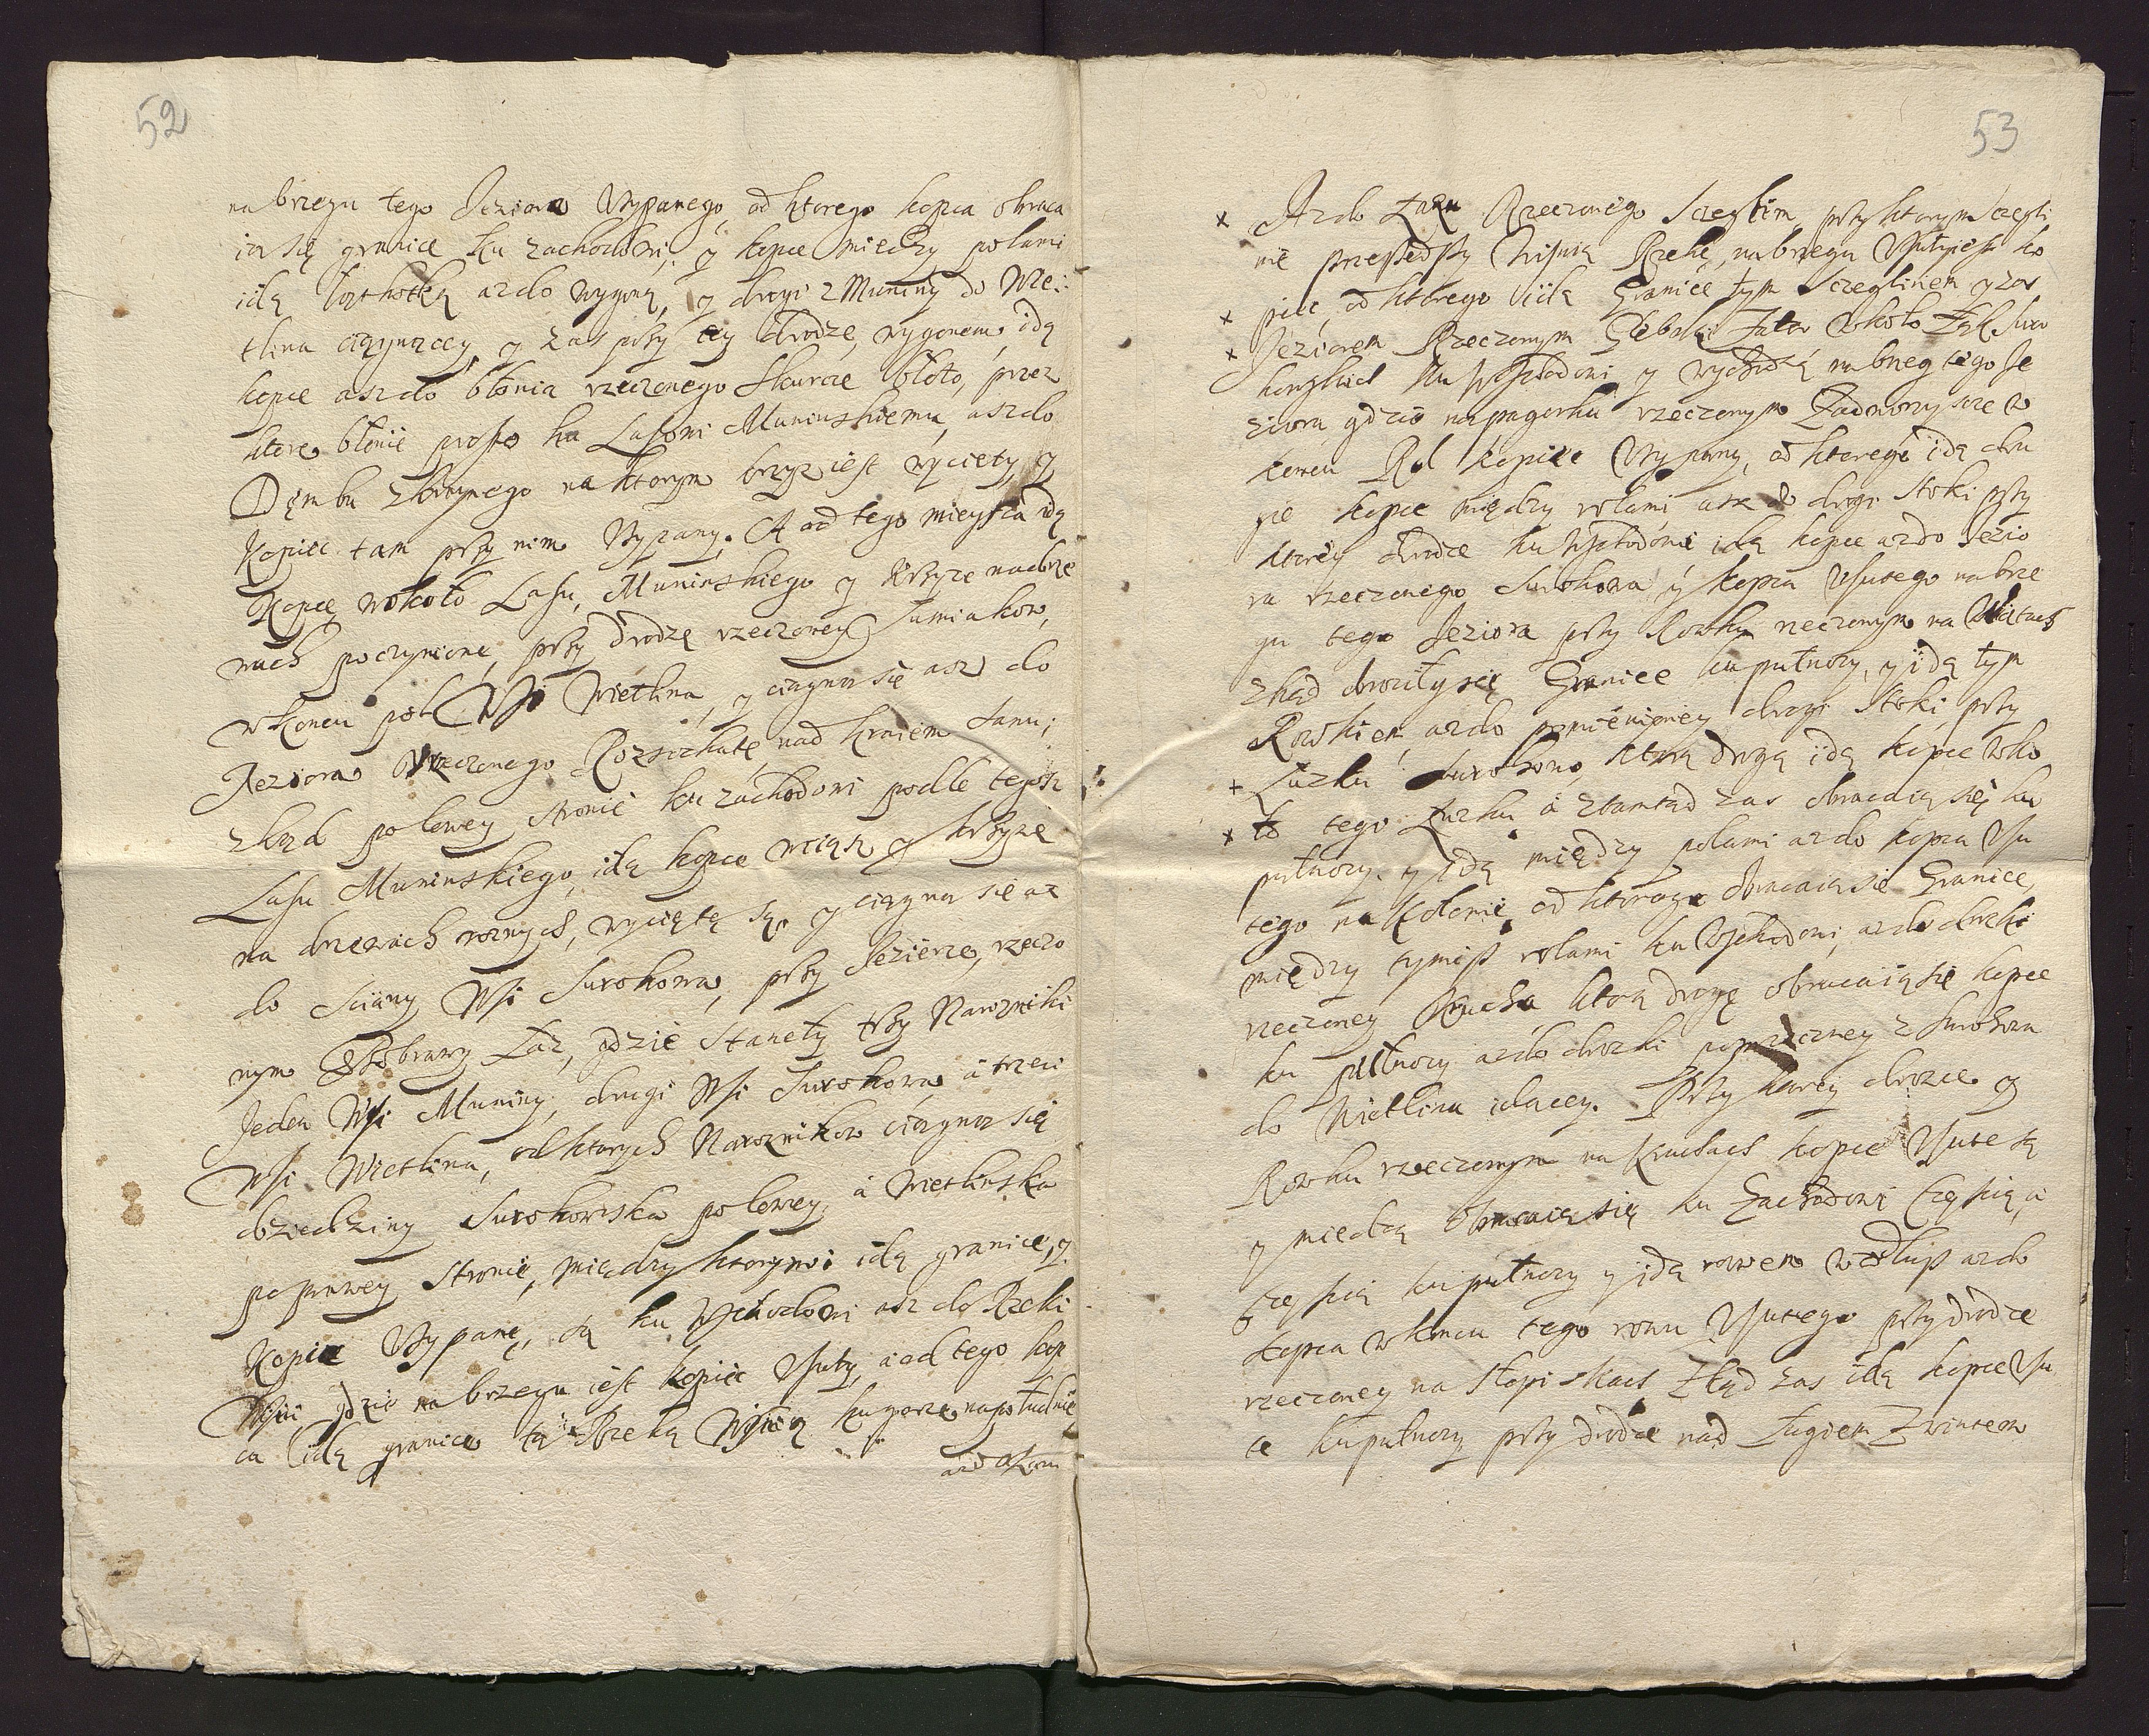 52
na brzegu tego Jeziora Usypanego, od ktorego kopca obraca
ia się granice ku zachodowi, y kopce miedzy polami
idą aż do wygonu, y drogi z Muniny do Wie:
tlina ciągnącey, y zas przy tey drodze, wygonem idą
kopce asz do błonia rzeczonego Skurcze błoto, przez
ktore błonie prosto ku Lasowi Muninskiemu, asz do
Dęmbu na ktorym krzyz iest wycięty, y
Kopiec tam przy nim Usypany. A od tego mieysca idą
Kopce wokoło Lasu, Muninskiego y Krzyze na drze
wach poczynione, przy drodze rzeczoney Sumiakow,
w koncu pol Wsi Wietlina, y ciągną się asz do
Jeziora rzeczonego nad kraiem Sanu;
zkąd po lewey stronie ku zachodowi podle tegosz
Lasu Muninskiego, idą kopce wciąsz y krzyze
na drzewach roznych, wycięte są, y ciągną się az
do sciany Wsi Surohowa, przy Jezierze, rzeczo
nym Łaz, gdzie stanęły trzy Narozniki
Jeden Wsi Muniny, drugi Wsi Surohowa, a trzeci
Wsi Wietlina, od ktorych Naroznikow ciągną się
dziedziny Surohowska po lewey, a Wietlinska
po prawey stronie, między ktorymi idą granice, y
Kopce Usypane, są ku Wschodowi asz do Rzeki
Wiszni gdzie na brzegu iest kopiec Usuty, a od tego kop
ca idą granice tą Rzeką Wisznią ku gorze na południe
53
Az do Łazu Rzeczonego Sczeglin, przy ktorym Sczegli
nie przeszedszy Wisznią Rzekę, na brzegu ko
piec, od ktorego idą Granice tym Sczeglinem y zas
Jeziorem Rzeczonym wokoło Łąk Suro
howskich ku Wschodowi y wychodzą na brzeg tego Je
ziora, gdzie na pagorku rzeczonym w
koncu Rol kopiec Usypany, od ktorego idą dru
gie kopce między rolami, asz do drogi Stoki przy
ktorey drodze ku Wschodowi idą kopce az do Jezio
ra rzeczonego Surohowa, y kopca Usutego na brze
gu tego Jeziora przy Rowku rzeczonym na
zkąd obrociły się Granice ku pułnocy, y idą tym
Rowkiem, az do pomienioney drogi Stoki, przy
Łuzku Surohowa, ktorą drogą idą kopce woko
ło tego Łuzku a ztamtąd zas obracaią się ku
pułnocy. y idą między polami az do kopca Usu
tego na Kolonie, od ktorego obracaią się Granice,
między tymisz rolami ku Wschodowi, az do drozki
rzeczoney Krucha ktorą drogę obracaią się kopce
ku pułnocy az do drozki poprzeczney z Surohowa
do Wietlina idącey. Przy ktorey drozce y
Rowku rzeczonym na Kruchach kopce Usute są
y miedzą obracaią się ku Zachodowi Częscią, a
częscią ku pułnocy y idą rowem wzdłusz az do
kopca w koncu tego rowu Usutego przy drodze
rzeczoney na Stopiskach Zkąd zas idą kopce Usu
te ku pułnocy, przy drodze nad Ługiem